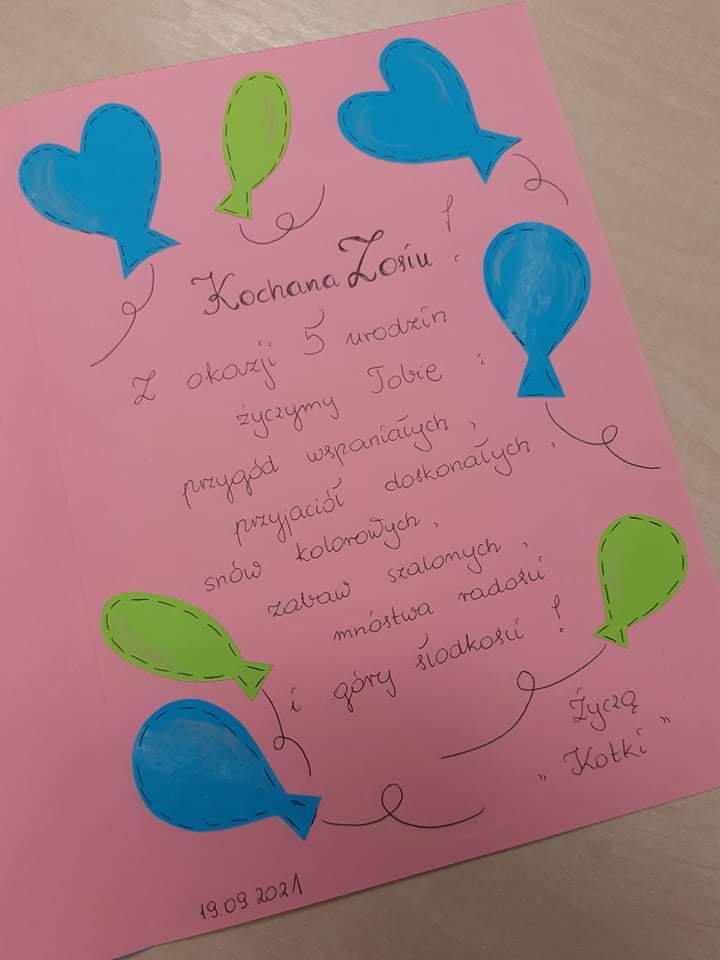 Kochana Zosiu !
Z okazji 5 urodzin
życzymy Tobie :
przygód wspaniałych ,
przyjaciół doskonałych ,
snów kolorowych ,
zabaw szalonych ,
mnóstwa radości
i góry słodkości !
Życzą
„ Kotki "
19.09.2021